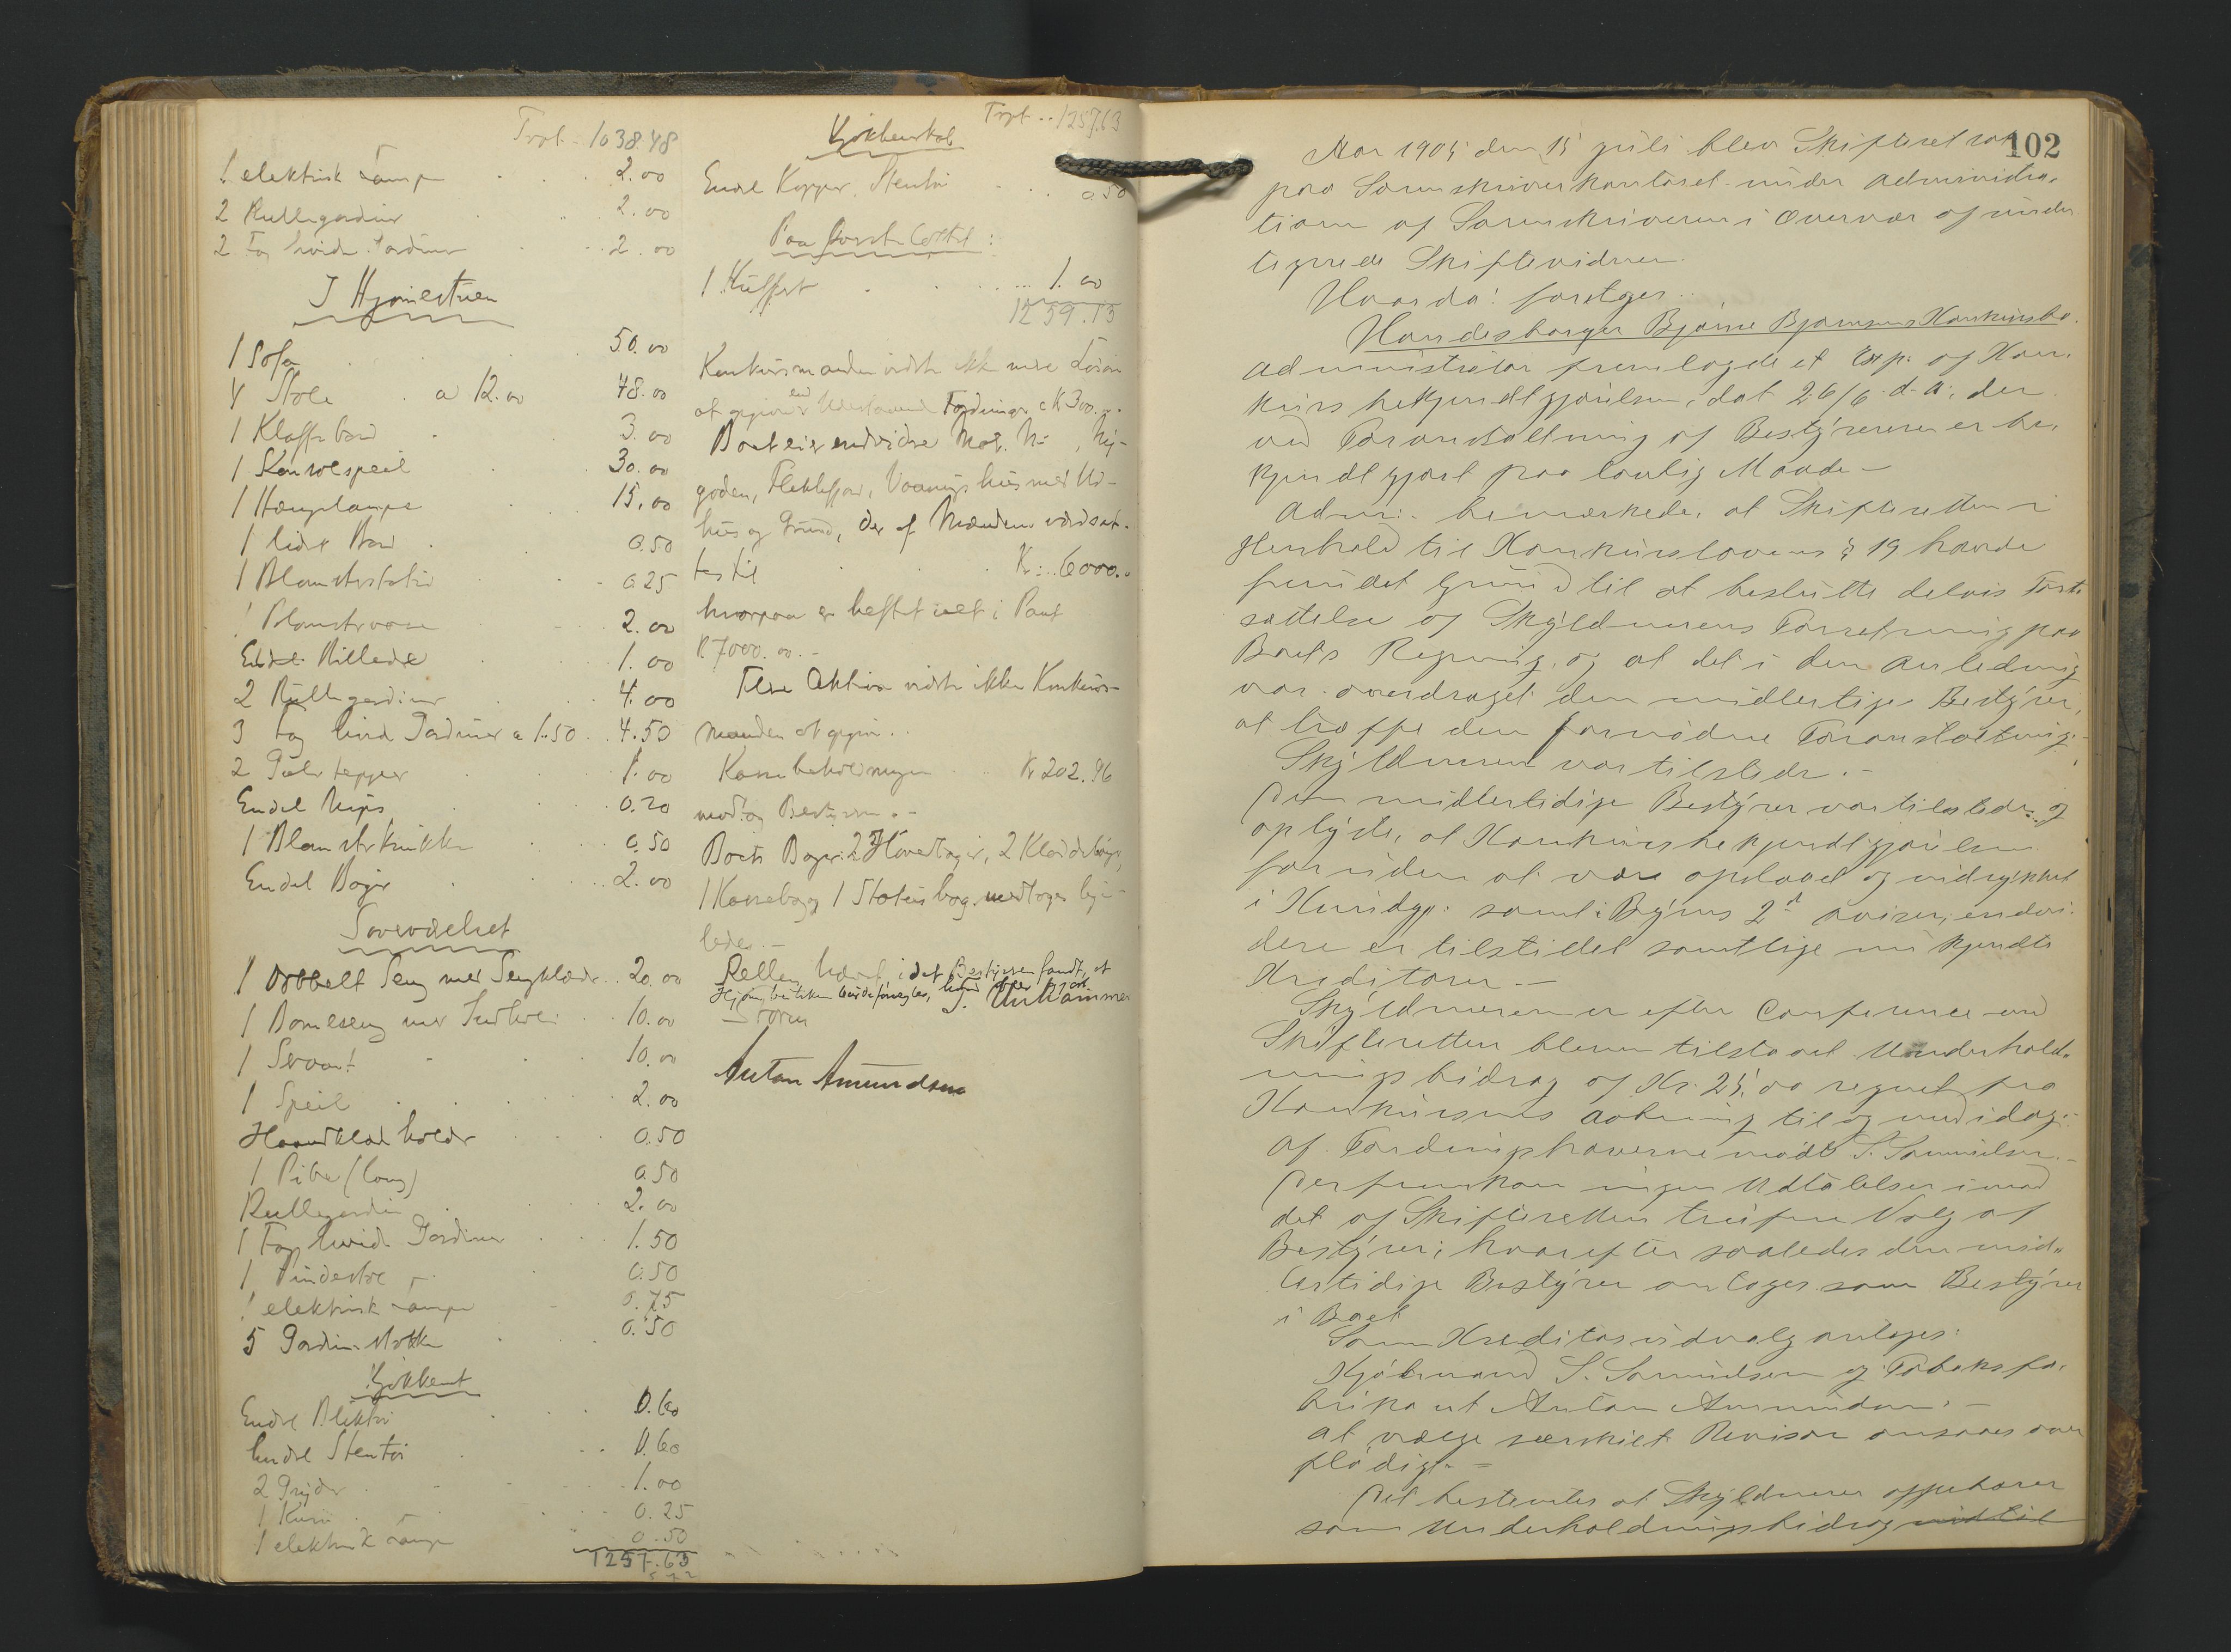 Trpt. 1038.48
1 elektrisk Lampe 2.00
2 Rullegardiner 2.00
2 Fag hvide Gardiner 2.00
I Hjørnestuen
1 Sofa 50.00
4 Stole a 12.00 48.00
1 Klaffebord 3.00
1 Konsolspeil 30.00
1 Hængelampe 15.00
1 lidet Bord 0.50
1 Blomsterstativ 0.25
1 Blomstervase 2.00
Endel Billeder 1.00
2 Rullegardiner 4.00
3 Fag hvid Gardiner a 1.50 4.50
2 Gulvtepper 1.00
Endel Nips 0.20
1 Blomsterkrukke 0.50
Endel Bøger 2.00
Soveværelset
1 dobbelt Seng med Sengklæder 20.00
1 Barneseng med Indhold 10.00
1 Servant 10.00
1 Speil 2.00
Haandklæholder 0.50
1 Pibe (lang) 0.50
Rullegardin 2.00
1 Fag hvide Gardiner 1.50
1 Pindestol 0.50
1 elektrisk Lampe 0.75
5 Gardinstokke 0.50
Kjøkkenet
Endel Bliktøi 0.60
Endel Stentøi 0.60
2 Gryder 1.00
1 Kurv 0.25
1 elektrisk Lampe 0.50
1257.63
Trpt. 1257.63
Kjøkkenskab
Endel Kopper, Stentøi 0.50
Paa Loftet:
1 Kuffert 1.00
1259.13
Konkursmanden vidste ikke mere Løsøre
at opgive end Udestaaende Fordringer c Kr 300.
Boet eier endvidere Mat. No , Ny-
goden, Flekkefjord, Vaaningshus med Ud-
hus og Grund, der af Mændene værdsat-
tes til Kr. 6000.
hvorpaa er heftet ialt i Pant
K 7000.00.-
Flere Aktiva vidste ikke Konkurs-
manden at opgive.
Kassebeholdningen Kr 202.96
modtog Bestyreren.-
Boets Bøger: 2 Hovedbøger, 2 Kladdebøger,
1 Kassebog og 1 Statusbog modtoges lige-
ledes.-
Retten hævet, idet Bestyreren fandt, at
Hjørnebutiken burde forsegles,
Anton Amundsen
102
Aar 1905 den 15 juli blev Skifteret sat
paa Sorenskriverkontoret under administra-
tion af Sorenskriveren i Overvær af under
tegnede Skiftevidner.
Hvorda! foretoges:
Handelsborger Bjarne Bjørnsens Konkursbo.
Administrator fremlagde et Exp. af Kon-
kursbekjendtgjørelsen, dat 26/6 d. a., der
ved Foranstaltning af Bestyreren er be-
kjendtgjort paa lovlig Maade -
Adm. bemærkede, at Skifteretten i
Henhold til Konkurslovens § 19 havde
fundet Grund til at beslutte delvis Fort-
sættelse af Skyldnerens Forretning paa
Boets Regning, og at det i den Anledning
var overdraget den midlertidige Bestyrer,
at træffe den fornødne Foranstaltning.
Skyldneren var tilstede.-
Den midlertidige Bestyrer var tilstede og
oplyste, at Konkursbekjendtgjørelsen
foruden at være opslaaet og indrykket
i Kundgj. samt i Byens 2de aviser, endvi-
dere er tilstillet samtlige nu kjendte
Kreditorer.-
Skyldneren er efter Conference med
Skifteretten bleven tilstaaet Underhold-
ningsbidrag af Kr. 25.00 regnet fra
Konkursens Aabning til og med idag.-
Af Fordringshaverne mødte S. Samuelsen.-
Der fremkom ingen Udtalelser imod
det af Skifteretten trufne Valg af
Bestyrer; hvorefter saaledes den mid-
lertidige Bestyrer antages som Bestyrer
i Boet
Som Kreditorudvalg antoges:
Kjøbmand S. Samuelsen og Tobaksfa-
brikant Anton Amundsen.-
At vælge særskilt Revisor ansaaes over
flødigt.-
Det bestemtes at Skyldneren oppebærer
som Underholdningsbidrag indtil